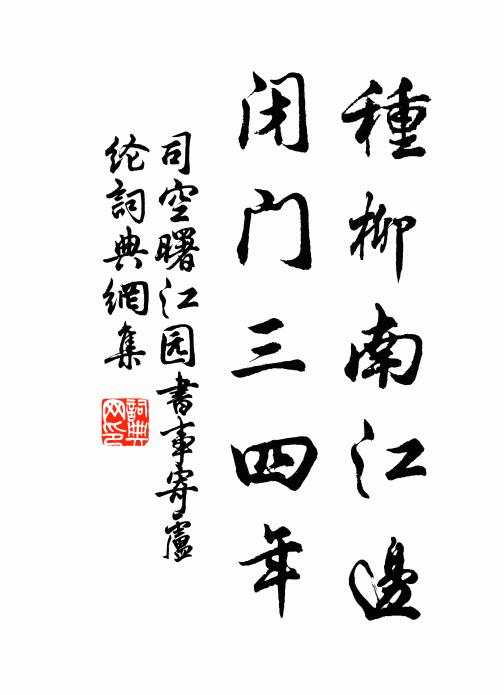 種柳南江邊
闭门三四年
司空曙江园書事寄盧
纶詞典網集
詞典
网印